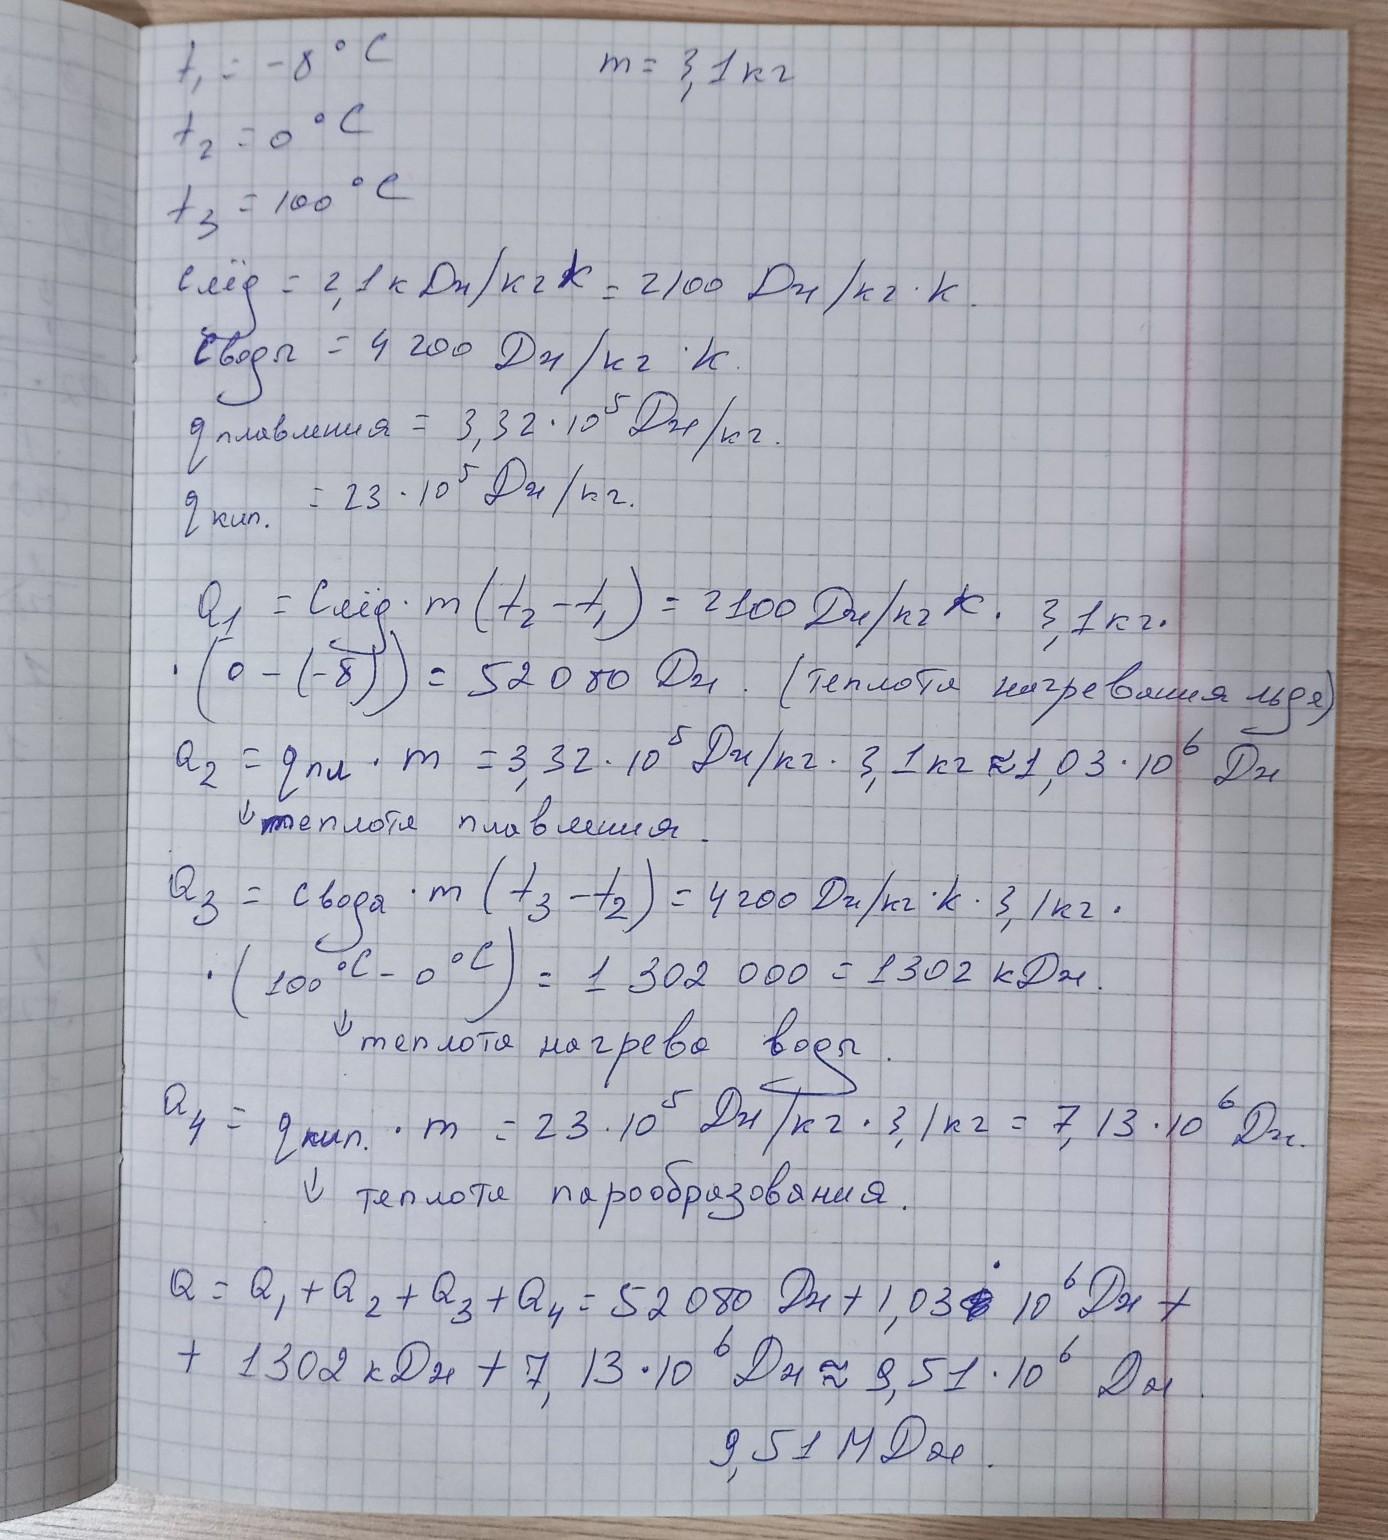 t₁ = -8°C m = 3,1 кг
t₂ = 0°C
t₃ = 100°C
Cлёд = 2,1 кДж/кг К = 2100 Дж/кг·К.
Cводы = 4200 Дж/кг·К.
qплавления = 3,32·10⁵ Дж/кг.
qкип. = 23·10⁵ Дж/кг.
Q₁ = Cлёд·m(t₂-t₁) = 2100 Дж/кг К· 3,1 кг·
·(0-(-8)) = 52080 Дж. (теплота нагревания льда)
Q₂ = qпл·m = 3,32·10⁵ Дж/кг·3,1 кг ≈ 1,03·10⁶ Дж
↓ теплота плавления.
Q₃ = Cвода·m(t₃-t₂) = 4200 Дж/кг·К·3,1 кг·
·(100°C-0°C) = 1 302 000 = 1302 кДж.
↓ теплота нагрева воды.
Q₄ = qкип.·m = 23·10⁵ Дж/кг·3,1 кг = 7,13·10⁶ Дж.
↓ теплота парообразования.
Q = Q₁+Q₂+Q₃+Q₄ = 52080 Дж + 1,03·10⁶ Дж +
+ 1302 кДж + 7,13·10⁶ Дж ≈ 9,51·10⁶ Дж.
9,51 МДж.